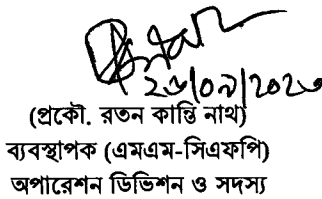 ২৬/০৯/২০২৩
(প্রকৌ. রতন কান্তি নাথ)
ব্যবস্থাপক (এমএম-সিএফপি)
অপারেশন ডিভিশন ও সদস্য